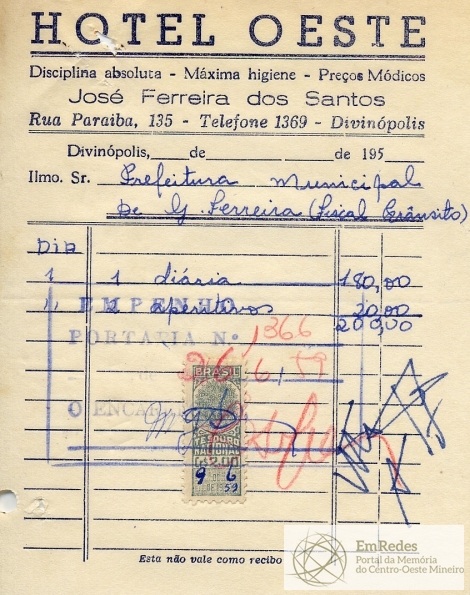 HOTEL OESTE
Disciplina absoluta - Máxima higiene - Preços Módicos
José Ferreira dos Santos
Rua Paraiba, 135 - Telefone 1369 - Divinópolis
Divinópolis, de de 195
Ilmo. Sr. Prefeitura Municipal
De G. Ferreira (Fiscal Trânsito)
DIA
1 1 diária 180,00
" 2 aperitivos 20,00
200,00
EMPENHO
PORTARIA N.º 1366
26 6 59
O ENCAR
BRASIL
TESOURO
NACIONAL
Cr$ 2,00
9 6
59
Esta não vale como recibo
EmRedes
Portal da Memória
do Centro-Oeste Mineiro